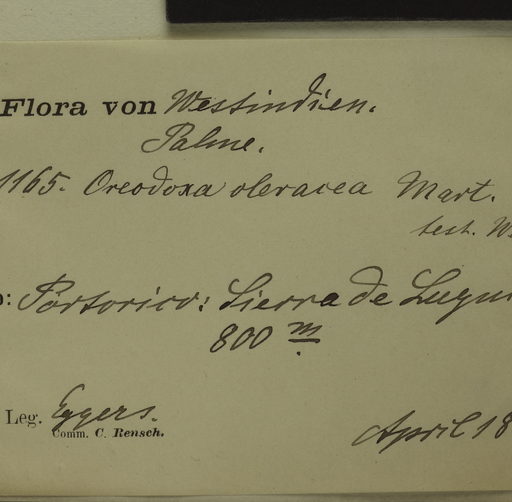 Flora von Westindien.
Palme.
1165. Oreodoxa oleracea Mart.
test. W
Portorico: Sierra de Luqui
800 m
Leg. Eggers.
Comm. C. Rensch.
April 18